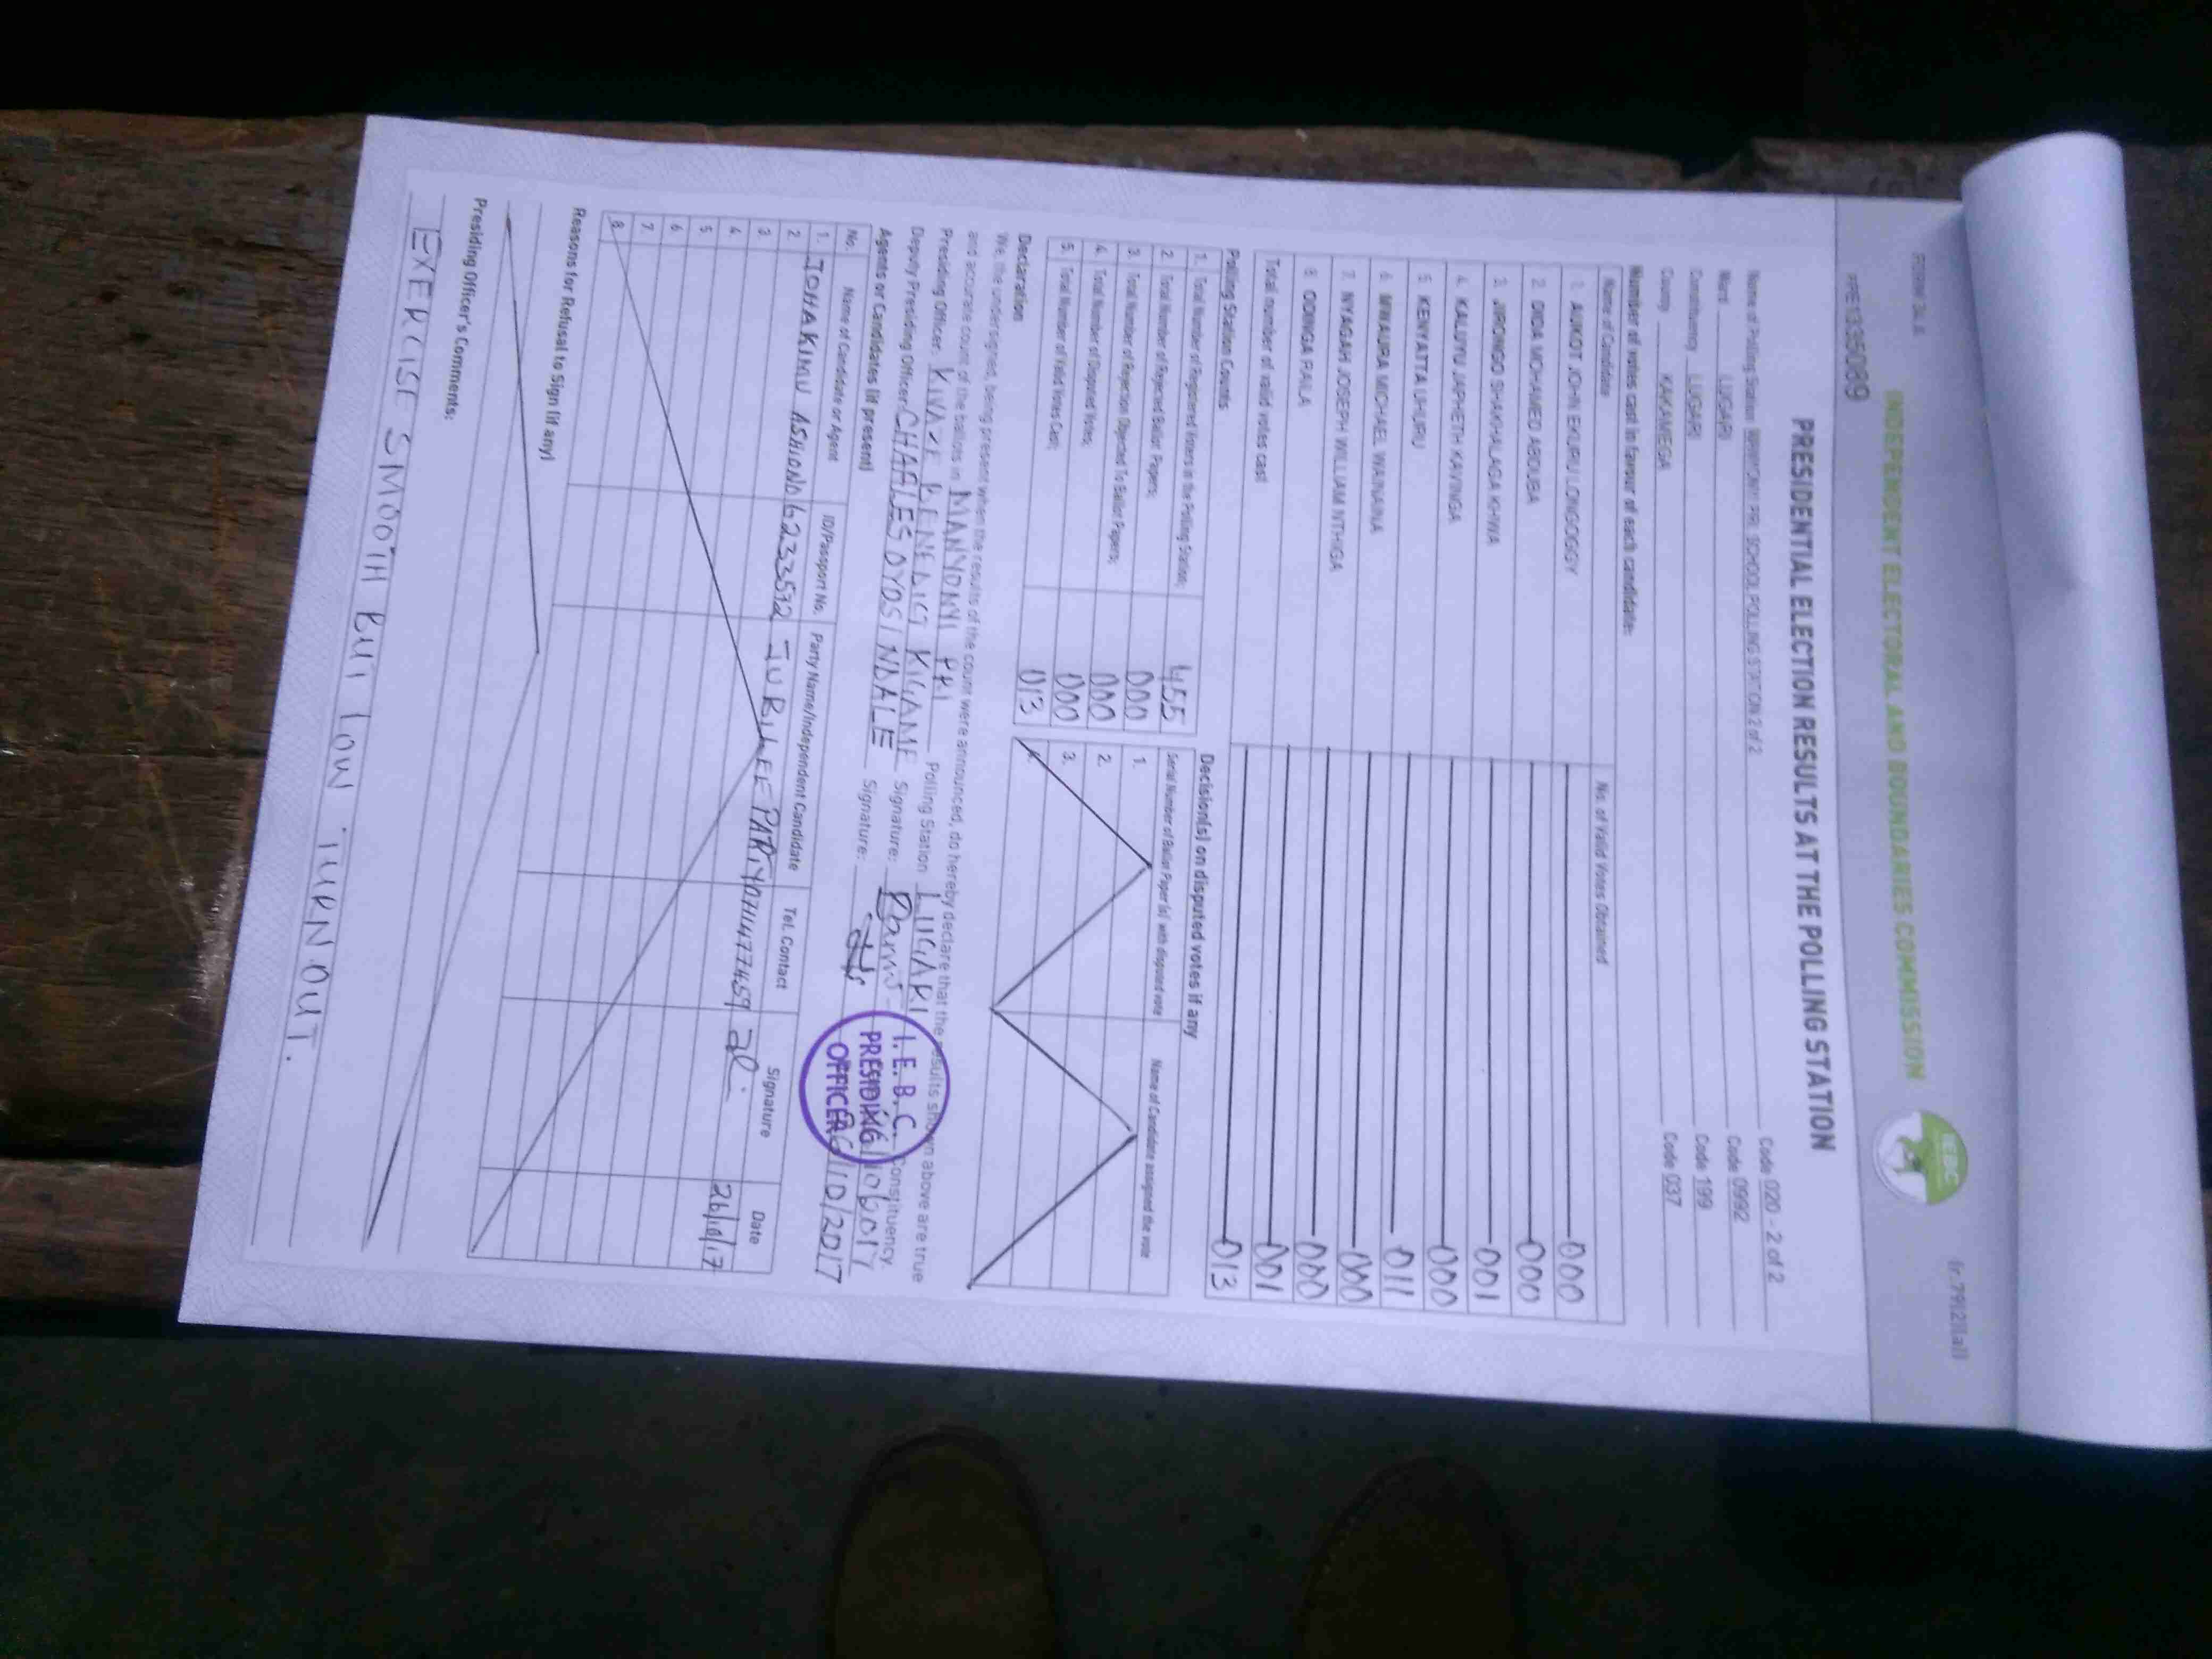 FORM 34 A
(r.79(2)(a))
INDEPENDENT ELECTORAL AND BOUNDARIES COMMISSION
IEBC
PRE1335089
PRESIDENTIAL ELECTION RESULTS AT THE POLLING STATION
Name of Polling Station MANYONYI PRI. SCHOOL POLLING STATION 2 of 2 Code 020 - 2 of 2
Ward LUGARI Code 0992
Constituency LUGARI Code 199
County KAKAMEGA Code 037
Number of votes cast in favour of each candidate:
Name of Candidate No. of Valid Votes Obtained
1. AUKOT JOHN EKURU LONGOGGY 000
2. DIDA MOHAMED ABDUBA 000
3. JIRONGO SHAKHALAGA KHWA 001
4. KALUYU JAPHETH KAVINGA 000
5. KENYATTA UHURU 011
6. MWAURA MICHAEL WAINAINA 000
7. NYAGAH JOSEPH WILLIAM NTHIGA 000
8. ODINGA RAILA 001
Total number of valid votes cast 013
Polling Station Counts
1. Total Number of Registered Voters in the Polling Station; 455
2. Total Number of Rejected Ballot Papers; 000
3. Total Number of Rejection Objected To Ballot Papers; 000
4. Total Number of Disputed Votes; 000
5. Total Number of Valid Votes Cast; 013
Decision(s) on disputed votes if any
Serial Number of Ballot Paper (s) with disputed vote Name of Candidate assigned the vote
1.
2.
3.
4.
Declaration
We, the undersigned, being present when the results of the count were announced, do hereby declare that the results shown above are true
and accurate count of the ballots in MANYONYI PRI Polling Station LUGARI Constituency.
Presiding Officer: KIVAZE BENEDICT KIGAME Signature: 26/10/2017
Deputy Presiding Officer: CHARLES OYOSI NDALE Signature: 26/10/2017
I.E.B.C.
PRESIDING
OFFICER
Agents or Candidates (if present)
No. Name of Candidate or Agent ID/Passport No. Party Name/Independent Candidate Tel. Contact Signature Date
1. JOHAKIMU ASHIONO 6233592 JUBILEE PARTY 0714477459 26/10/17
2.
3.
4.
5.
6.
7.
8.
Reasons for Refusal to Sign (if any)
Presiding Officer's Comments:
EXERCISE SMOOTH BUT LOW TURN OUT.